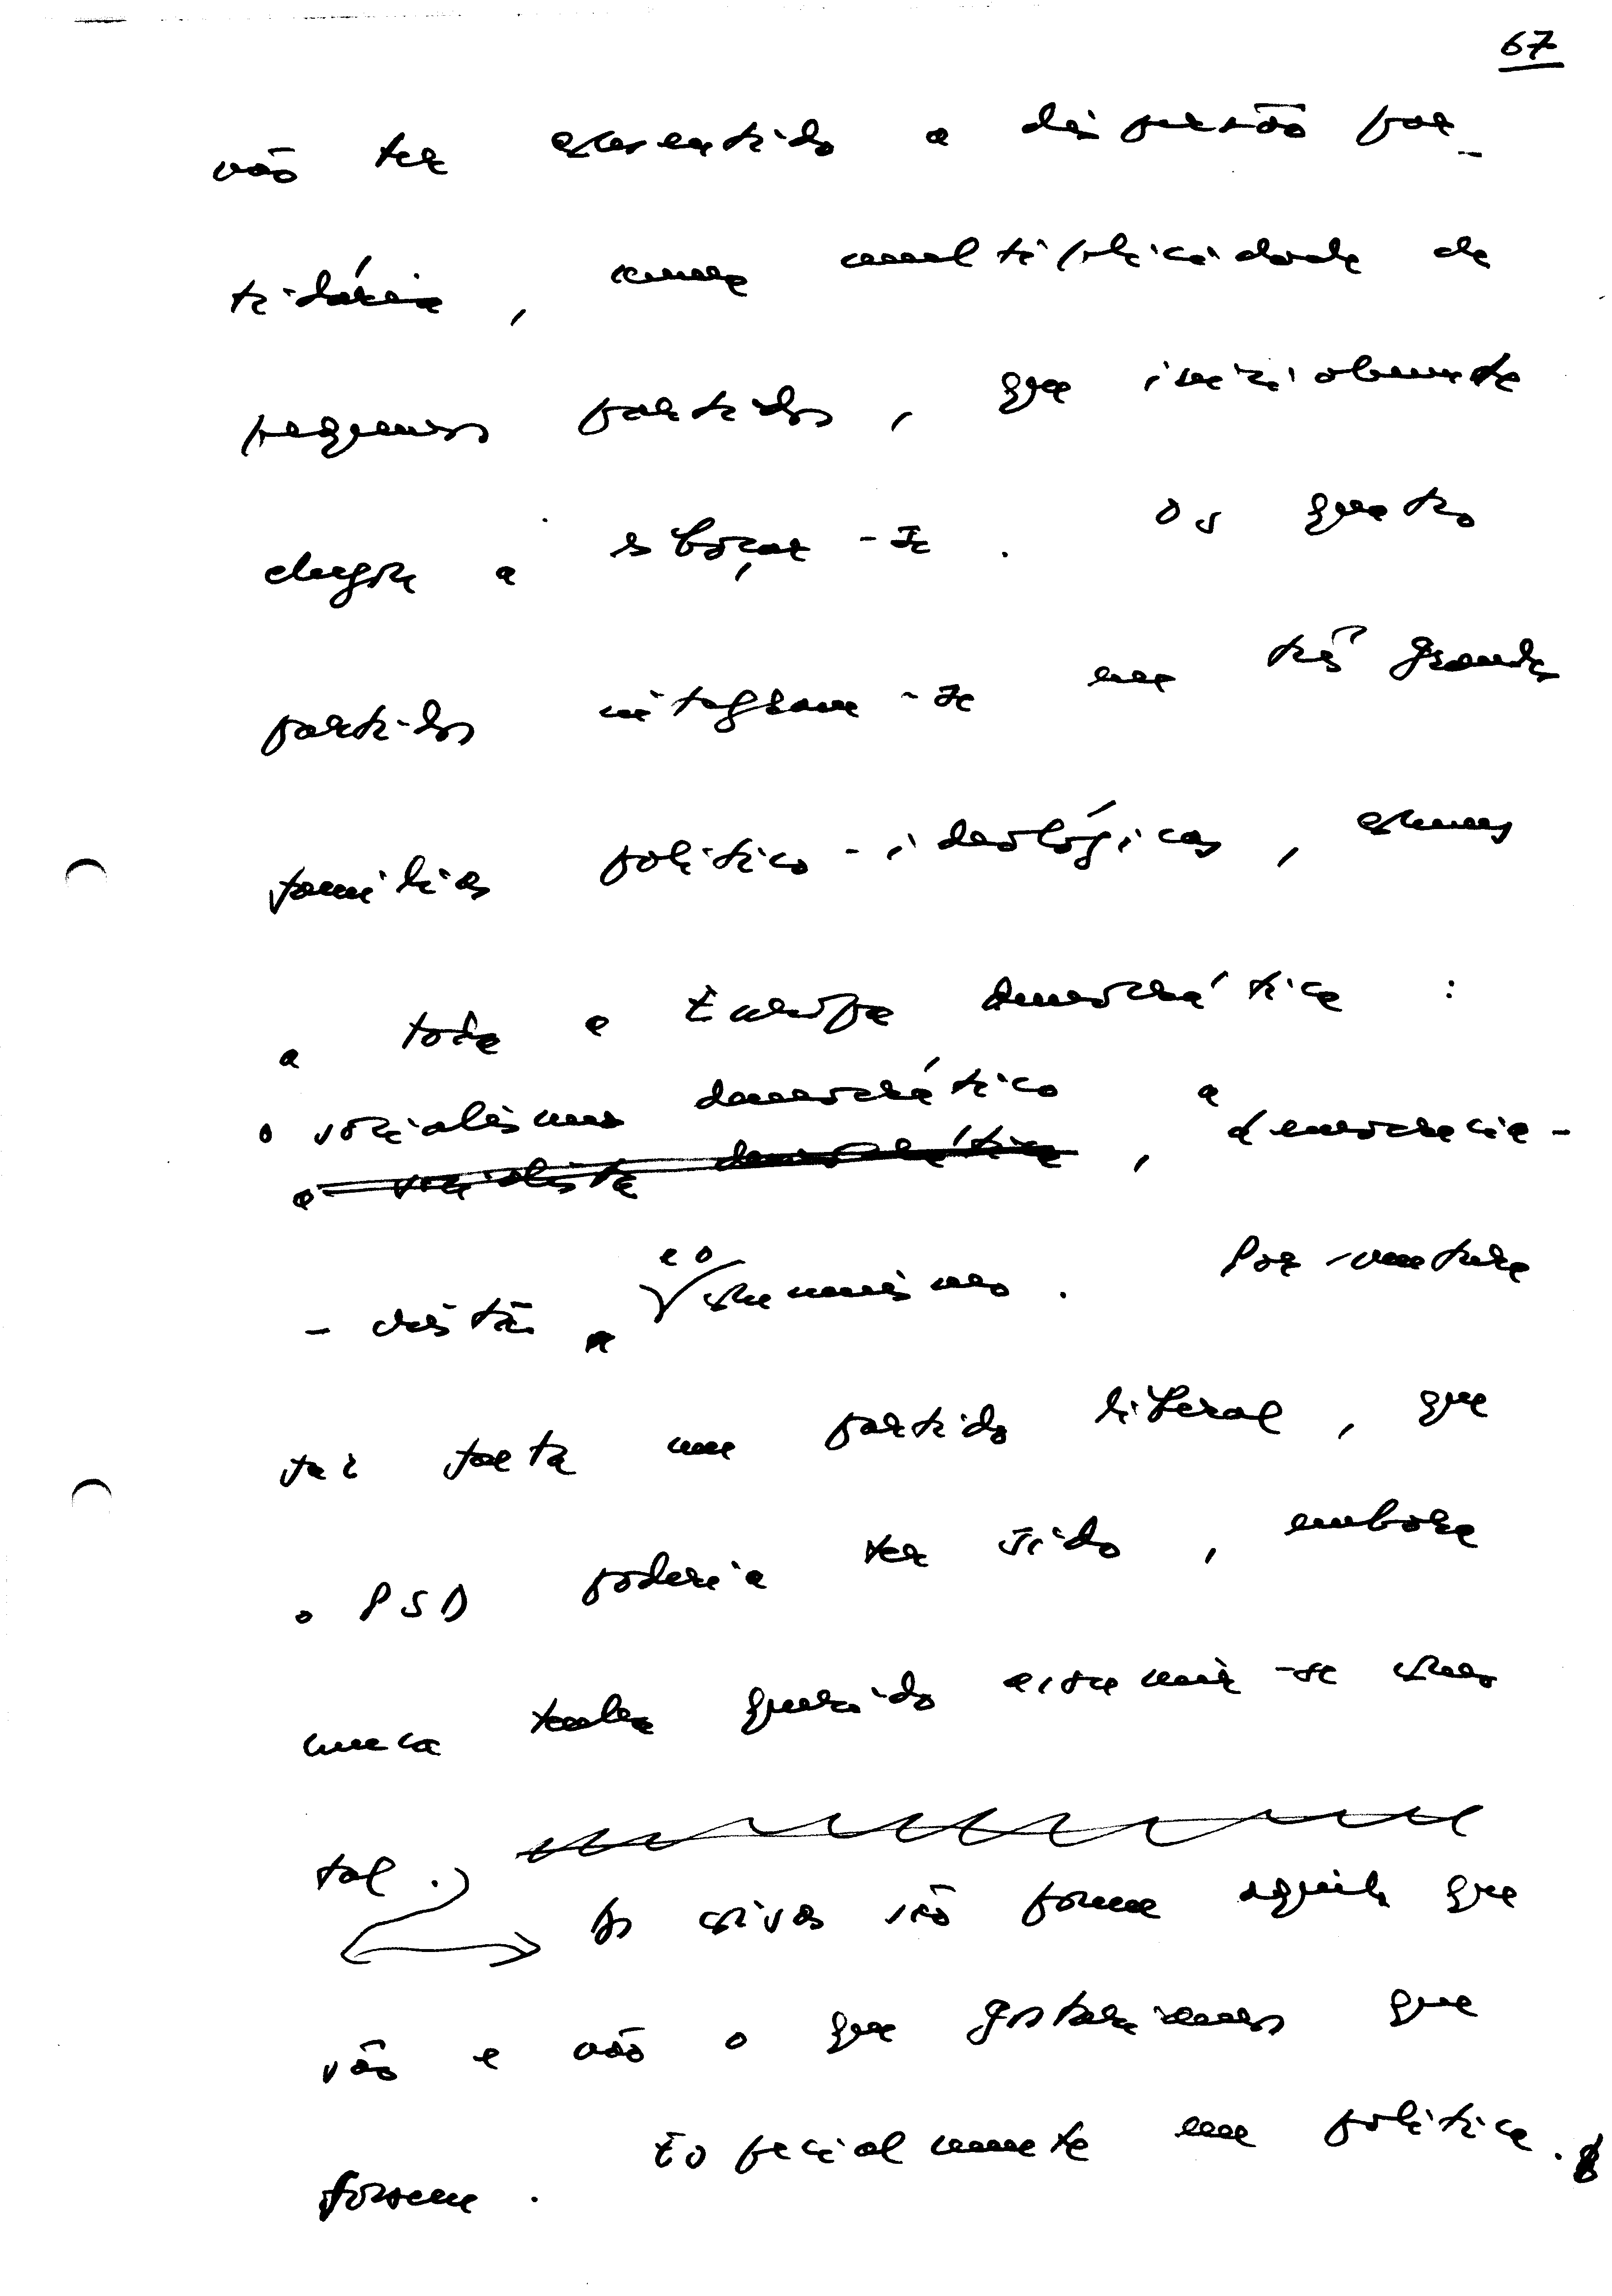 67
não ter consentido a dispersão par-
tidária, numa multiplicidade de
pequenos partidos, que inicialmente
chegou a esboçar-se. Os quatro
partidos integram-se em três grandes
famílias político-ideológicas, comuns
a toda a Europa democrática:
o socialismo democrático, a democracia-
a socialista democrática
-cristã e o comunismo. Porventura
faz falta um partido liberal, que
o PSD poderia ter sido, embora
nunca tenha querido assumir-se como
tal.
As coisas são porém aquilo que
são e não o que gostaríamos que
fossem. Especialmente em política.